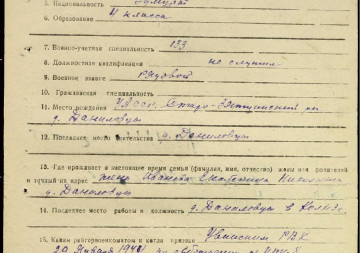 5. Национальность
6. Образование 4 класса
7. Военно-учетная специальность 133
8. Должностная квалификация не служил
9. Военное звание рядовой
10. Гражданская специальность
11. Место рождения УАССР, Старо-Зятцинский р-н
д. Даниловцы
12. Последнее место жительства д. Даниловцы
13. Где проживает в настоящее время семья (фамилия, имя, отчество) жены или родителей
и точный их адрес жена Иванова Екатерина
д. Даниловцы
14. Последнее место работы и должность д. Даниловцы в колхозе
15. Каким райгорвоенкоматом и когда призван Увинским РВК
20 Января 194